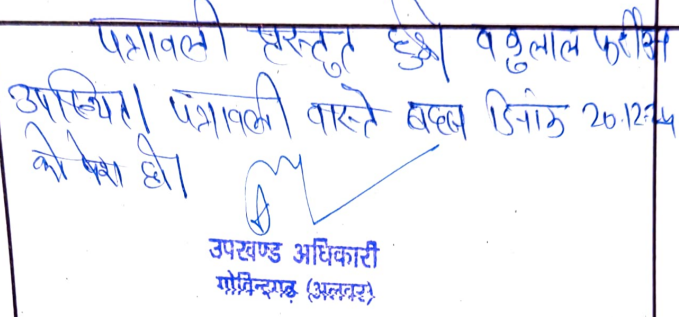 पत्रावली प्रस्तुत हुई। वकुलाल फरीकेन
उपस्थित। पत्रावली वास्ते बहस दिनांक 20.12.24
को पेश हो।
उपखण्ड अधिकारी
गोविन्दगढ़ (अलवर)